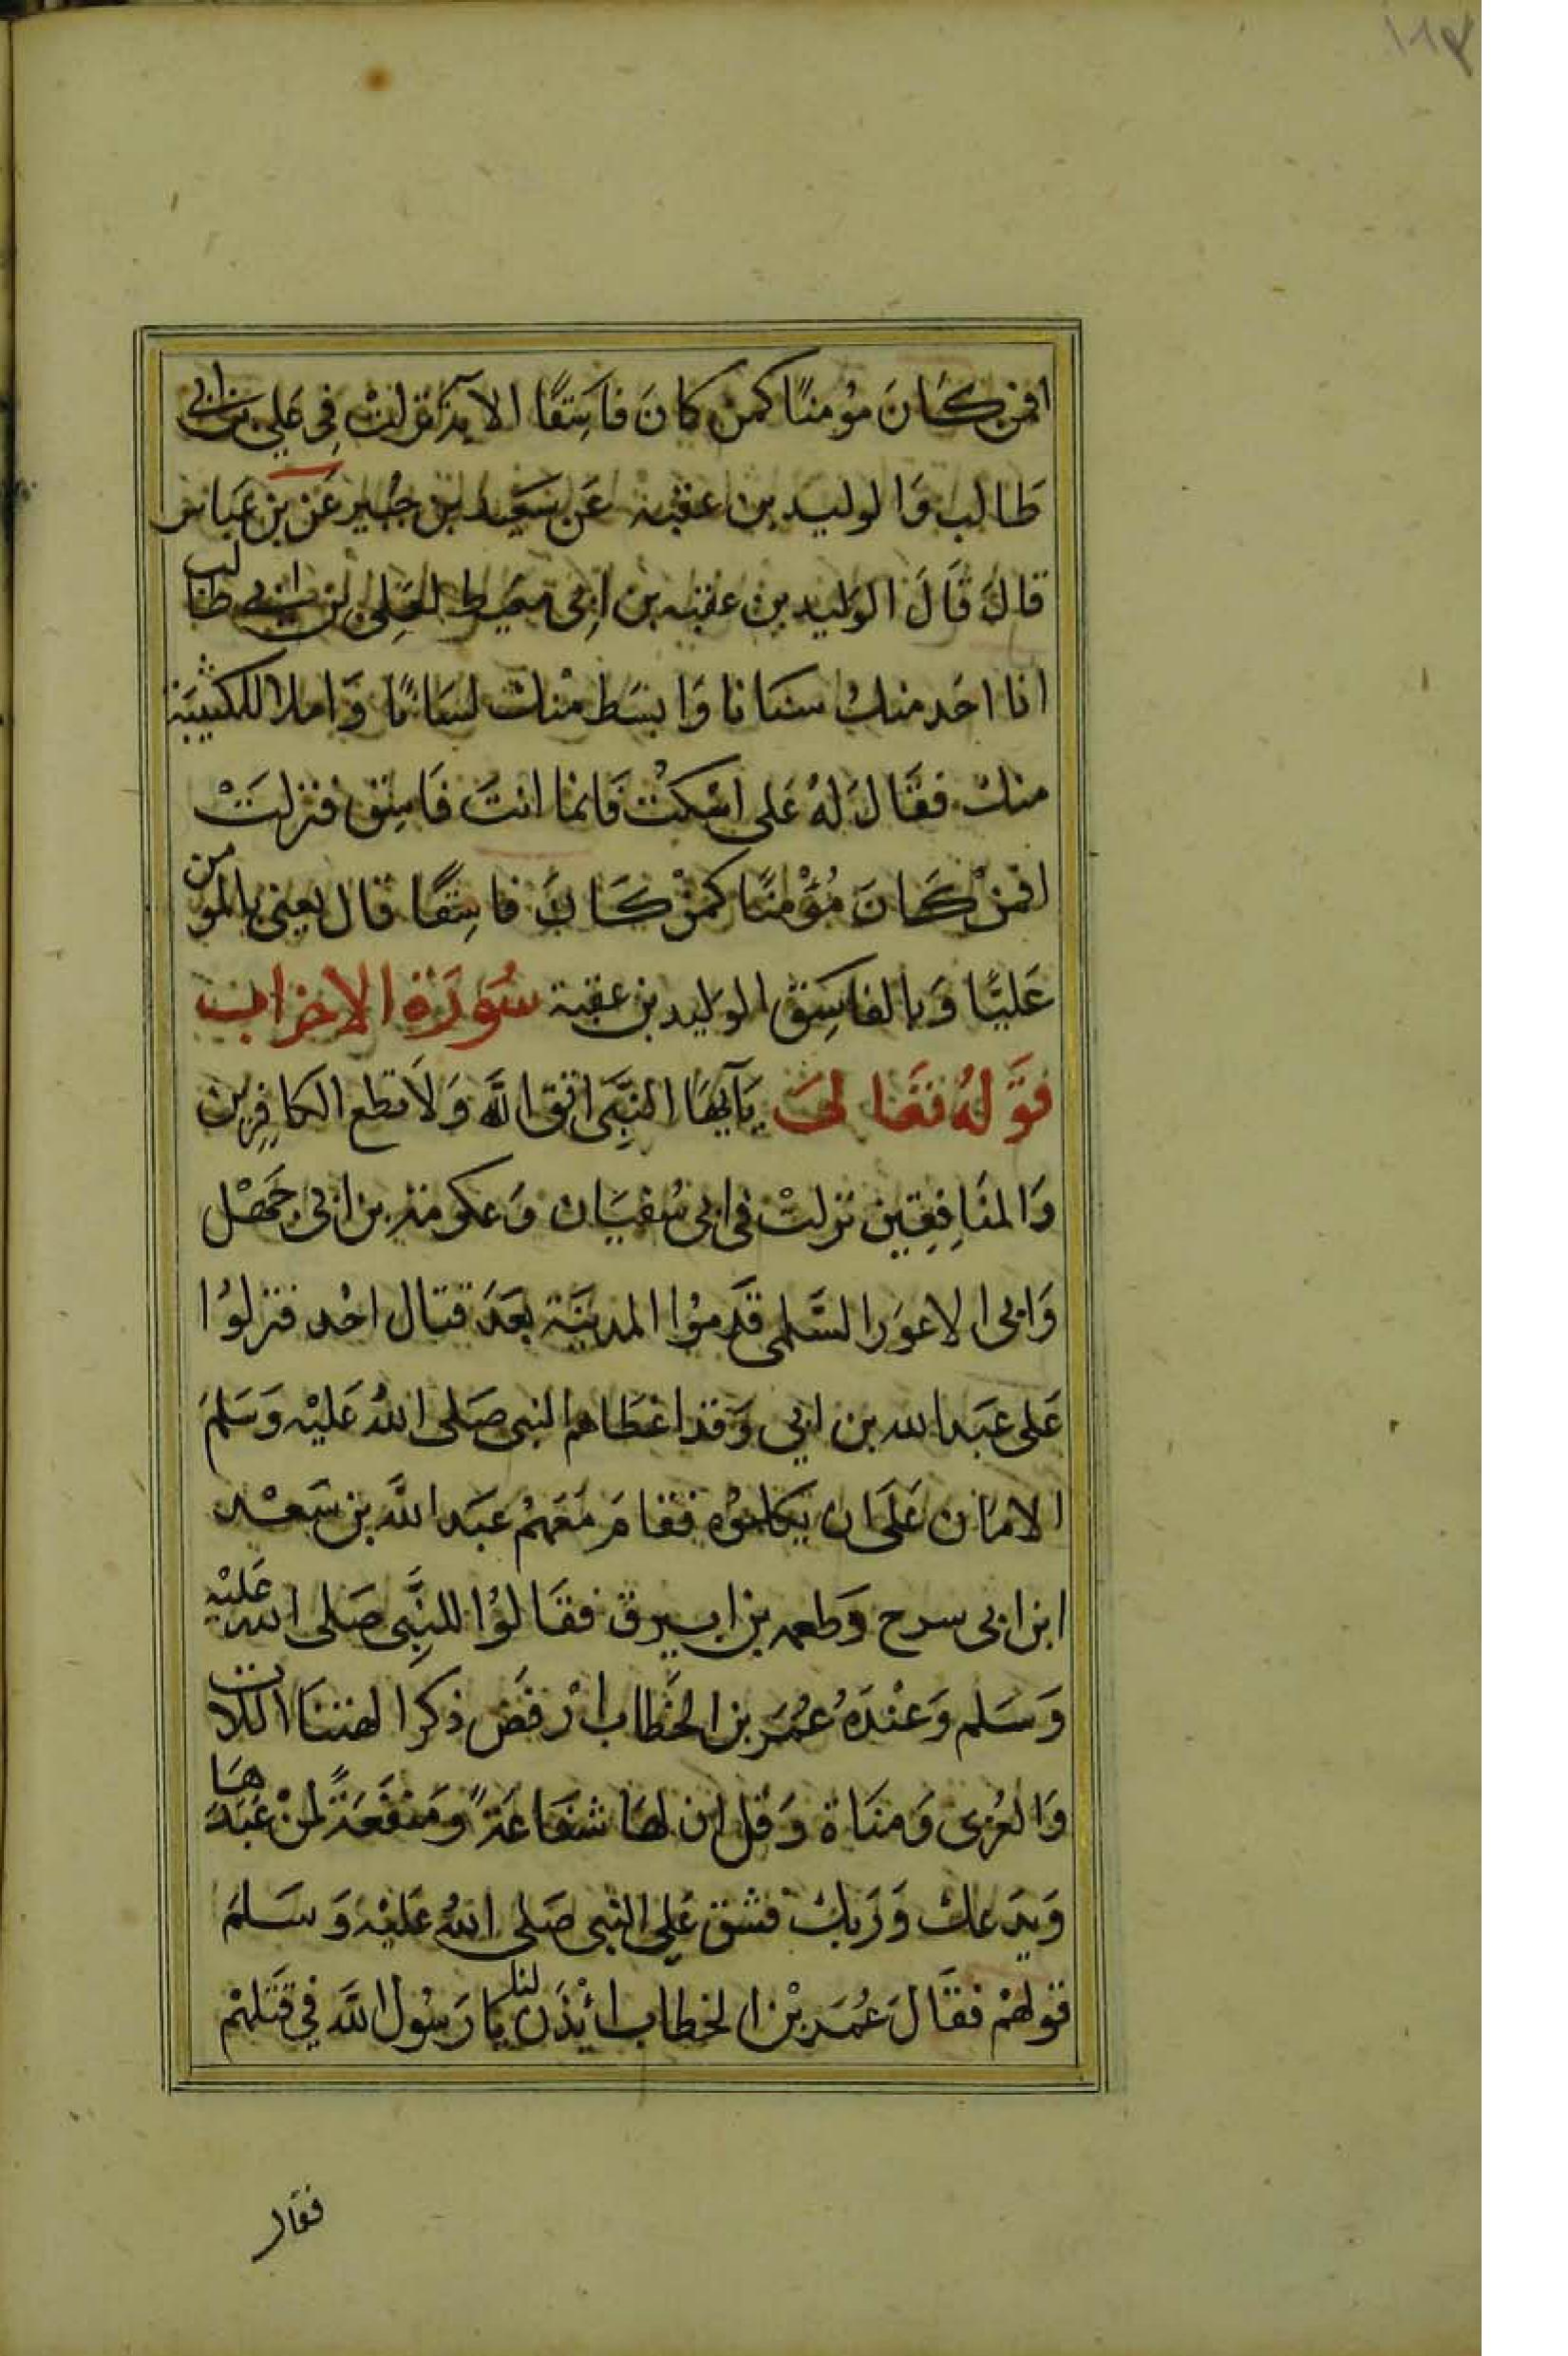 ١٨٧
افمن كَانَ مؤمنًا كمن كانَ فاسِقًا الاية نزلتْ فِي عَلي بن ابي
طَالب وَالوليد بن عقبة عَن سَعيد بن جبُير عَن بن عَباس
قالَ قَالَ الوَليد بن عقبه بن ابِي معَيط لعَلِي بن ابي طالب
انا احَد منك سنانا وَابسَط منك لسَانًا وَاملا للكتيبَة
منك فقَالَ لهُ عَلى اسْكتْ فَانما انتَ فَاسِق فنزلَتْ
افمنْ كَانَ مُؤْمنًا كمنْ كَانَ فاسِقًا قال يعني بالمومن
عَليًا وَبالفاسِق الوَليد بن عقبة سُورَة الاحزاب
قوَلهُ تعَالىَ يَآيهَا النبِّى اتق الله وَلاَ تطع الكافِرين
وَالمنَافِقِين نزلتْ في ابي سُفيَان وَعكرمة بن ابي جَهْل
وَابي الاعوَر السَّلمي قدَموُا المدينَة بَعدَ قتال احُد فنزلوُا
عَلى عبَد الله بن ابي وَقد اعْطَاهم النبي صَلى اللهُ عَليْه وَسَلم
الامَان عَلَى ان يكلموُه فقامَ مَعَهمُ عبَد الله بن سَعْد
ابن ابي سرح وَطعمه بن ابيرق فقَالوُا للنبِّى صَلى الله عَليْه
وَسَلم وَعنْدَهُ عُمَر بن الخطاب ارْفَض ذكر الهتنَا اللات
وَالعُزى وَمنَاة وَقل ان لهَا شفَاعَةً وَمَنفَعَةً لمنْ عَبَدهَا
وَيدَعك وَرَبك فشق عَلي النبي صَلى اللهُ عَليْه وَسَلمَ
قولهمْ فقَالَ عُمَر بْن الخطاب ائذَن لنا يَا رَسُول الله في قتَلهمْ
فقال